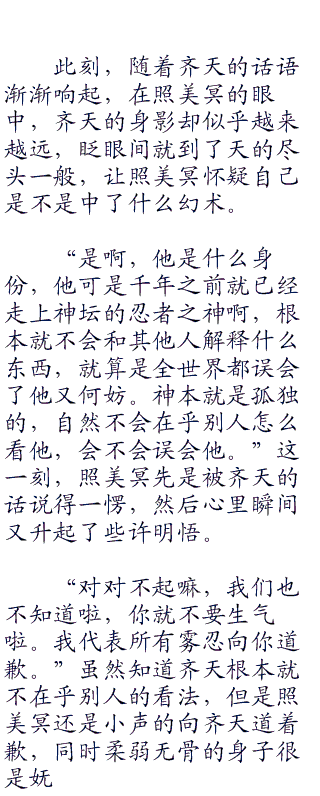 此刻，随着齐天的话语
渐渐响起，在照美冥的眼
中，齐天的身影却似乎越来
越远，眨眼间就到了天的尽
头一般，让照美冥怀疑自己
是不是中了什么幻术。
“是啊，他是什么身
份，他可是千年之前就已经
走上神坛的忍者之神啊，根
本就不会和其他人解释什么
东西，就算是全世界都误会
了他又何妨。神本就是孤独
的，自然不会在乎别人怎么
看他，会不会误会他。”这
一刻，照美冥先是被齐天的
话说得一愣，然后心里瞬间
又升起了些许明悟。
“对对不起嘛，我们也
不知道啦，你就不要生气
啦。我代表所有雾忍向你道
歉。”虽然知道齐天根本就
不在乎别人的看法，但是照
美冥还是小声的向齐天道着
歉，同时柔弱无骨的身子很
是妩